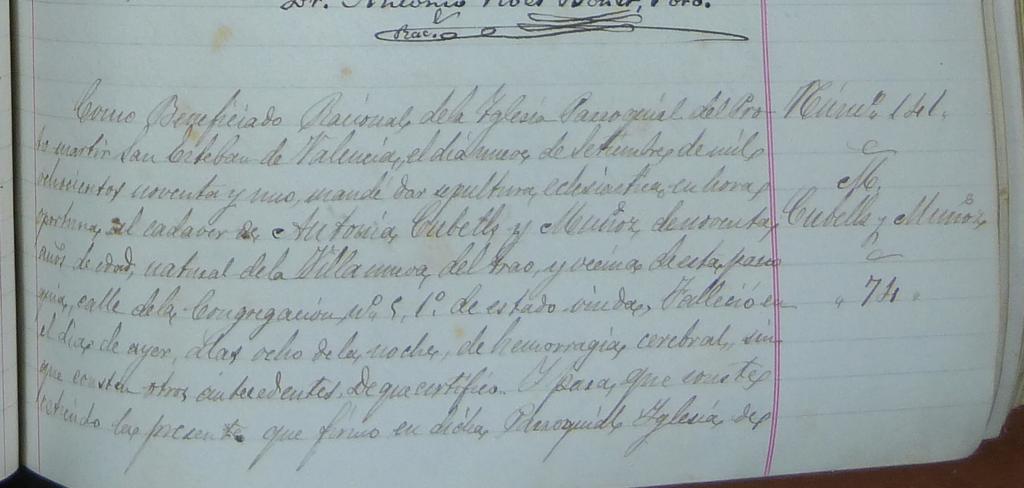 Dr. Antonio
Rac.
Como Beneficiado Racional, de la Yglesia Parroquial del Pro-
to martir San Esteban de Valencia, el dia nueve de Setiembre de mil
ochocientos noventa y uno, mandé dar sepultura, eclesiastica, en hora
oportuna, al cadaver de Antonia Cubells y Muñoz, de noventa
años de edad, natural de la Villanueva, del Grao, y vecina de esta parro
quia, calle de la Congregación, nº 5, 1º. de estado viuda, Falleció en
el dia de ayer, á las ocho de la noche, de hemorragia cerebral, sin
que consten otros antecedentes. De que certifico. Y para que conste,
estiendo la presente que firmo en dicha Parroquial Yglesia de
Núm.º 141.
M.
Cubells y Muñoz
74